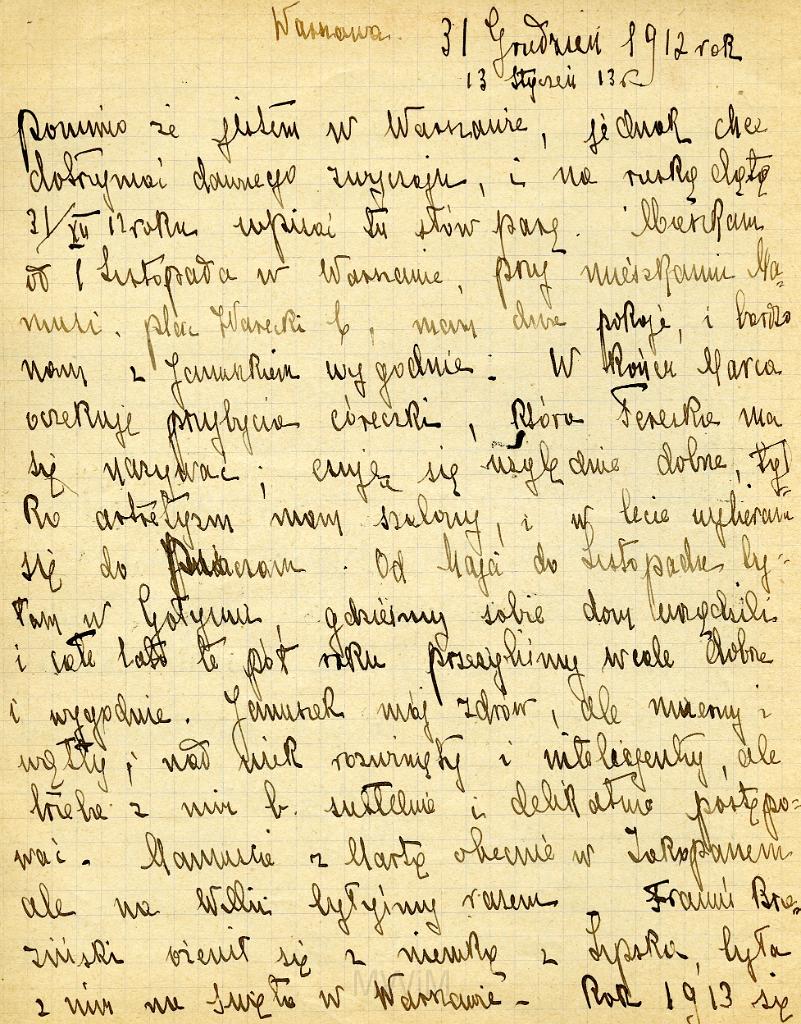 Warszawa. 31 Grudzień 1912 rok
13 Styczeń 13 r
pomimo że jestem w Warszawie, jednak chcę
dotrzymać dawnego zwyczaju, i na ruską datę
31/XII 12 roku wpisać tu słów parę. Mieszkam
od 1 Listopada w Warszawie, przy mieszkaniu Ma-
musi. plac Warecki 6, mam dwa pokoje, i bardzo
nam z Januszkiem wygodnie. W końcu Marca
oczekuję przybycia córeczki, która Tereska ma
się nazywać; czuję się względnie dobrze, tyl
ko artretyzm mam szalony, i w lecie wybieram
się do . Od Maja do Listopada by-
łam w Gołyniu, gdzieśmy sobie dom urządzili
i całe lato te pół roku przeżyliśmy wcale dobrze
i wygodnie. Januszek mój zdrów, ale mizerny i
wątły, nad wiek rozwinięty i inteligentny, ale
trzeba z nim b. subtelnie i delikatnie postępo-
wać. Mamusia z Martą obecnie w Zakopanem
ale na Wilii byłyśmy razem. Franuś Bro-
ziński ożenił się z niemką z Lypska, była
z nim na święta w Warszawie - Rok 1913 się
MWiM